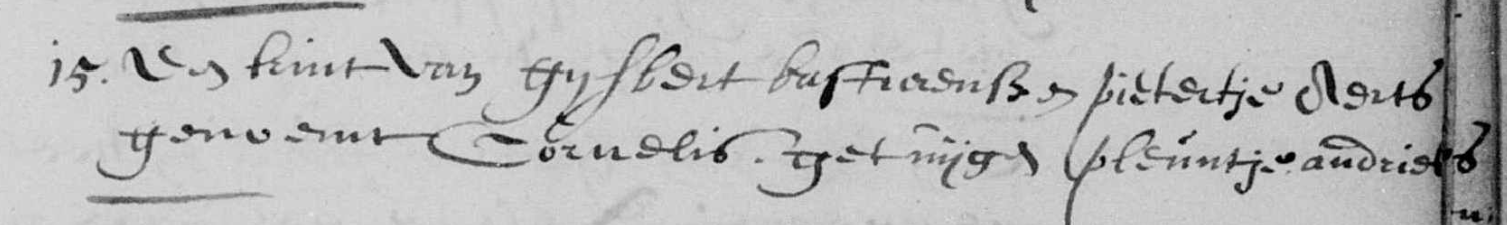 15. Een kint van Gijsbert bastiaensz en pietertje Aerts
genoemt Cornelis. getuijgen pleuntje andries